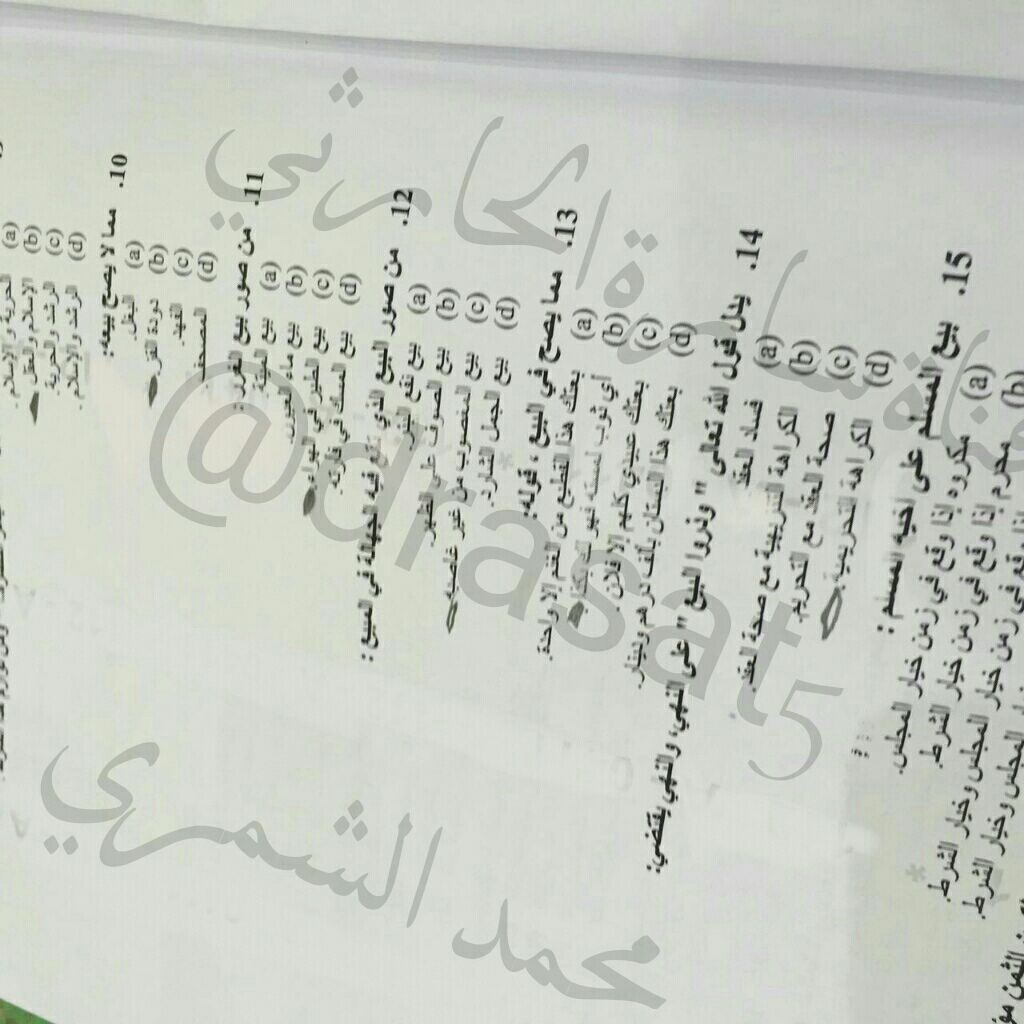 (a) الحرية والإسلام.
(b) الإسلام والعقل.
(c) الرشد والحرية.
(d) الرشد والإسلام.
10. مما لا يصح بيعه:
(a) البغل.
(b) دودة القز.
(c) الفهد.
(d) المصحف.
11. من صور بيع الغرر:
(a) بيع الميتة.
(b) بيع ماء العيون.
(c) بيع الطير في الهواء.
(d) بيع المسك في فأرته.
12. من صور البيع الذي تقع فيه الجهالة في المبيع:
(a) بيع نقع البئر.
(b) بيع الصوف على الظهر.
(c) بيع المغصوب من غير غاصبه.
(d) بيع الجمل الشارد.
13. مما يصح في البيع، قوله:
(a) بعتك هذا القطيع من الغنم إلا واحدة.
(b) أي ثوب لمسته فهو لك بكذا.
(c) بعتك عبيدي كلهم إلا فلان.
(d) بعتك هذا البستان بألف درهم ودينار.
14. يدل قول الله تعالى " وذروا البيع " على النهي، والنهي يقتضي:
(a) فساد العقد.
(b) الكراهة التنزيهية مع صحة العقد.
(c) صحة العقد مع التحريم.
(d) الكراهة التحريمية.
15. بيع المسلم على أخيه المسلم:
(a) مكروه إذا وقع في زمن خيار المجلس.
(b) محرم إذا وقع في زمن خيار الشرط.
إذا وقع في زمن خيار المجلس وخيار الشرط.
المجلس وخيار الشرط.
الثمن
قناة سارة الحارثي
@drasat5
محمد الشمري